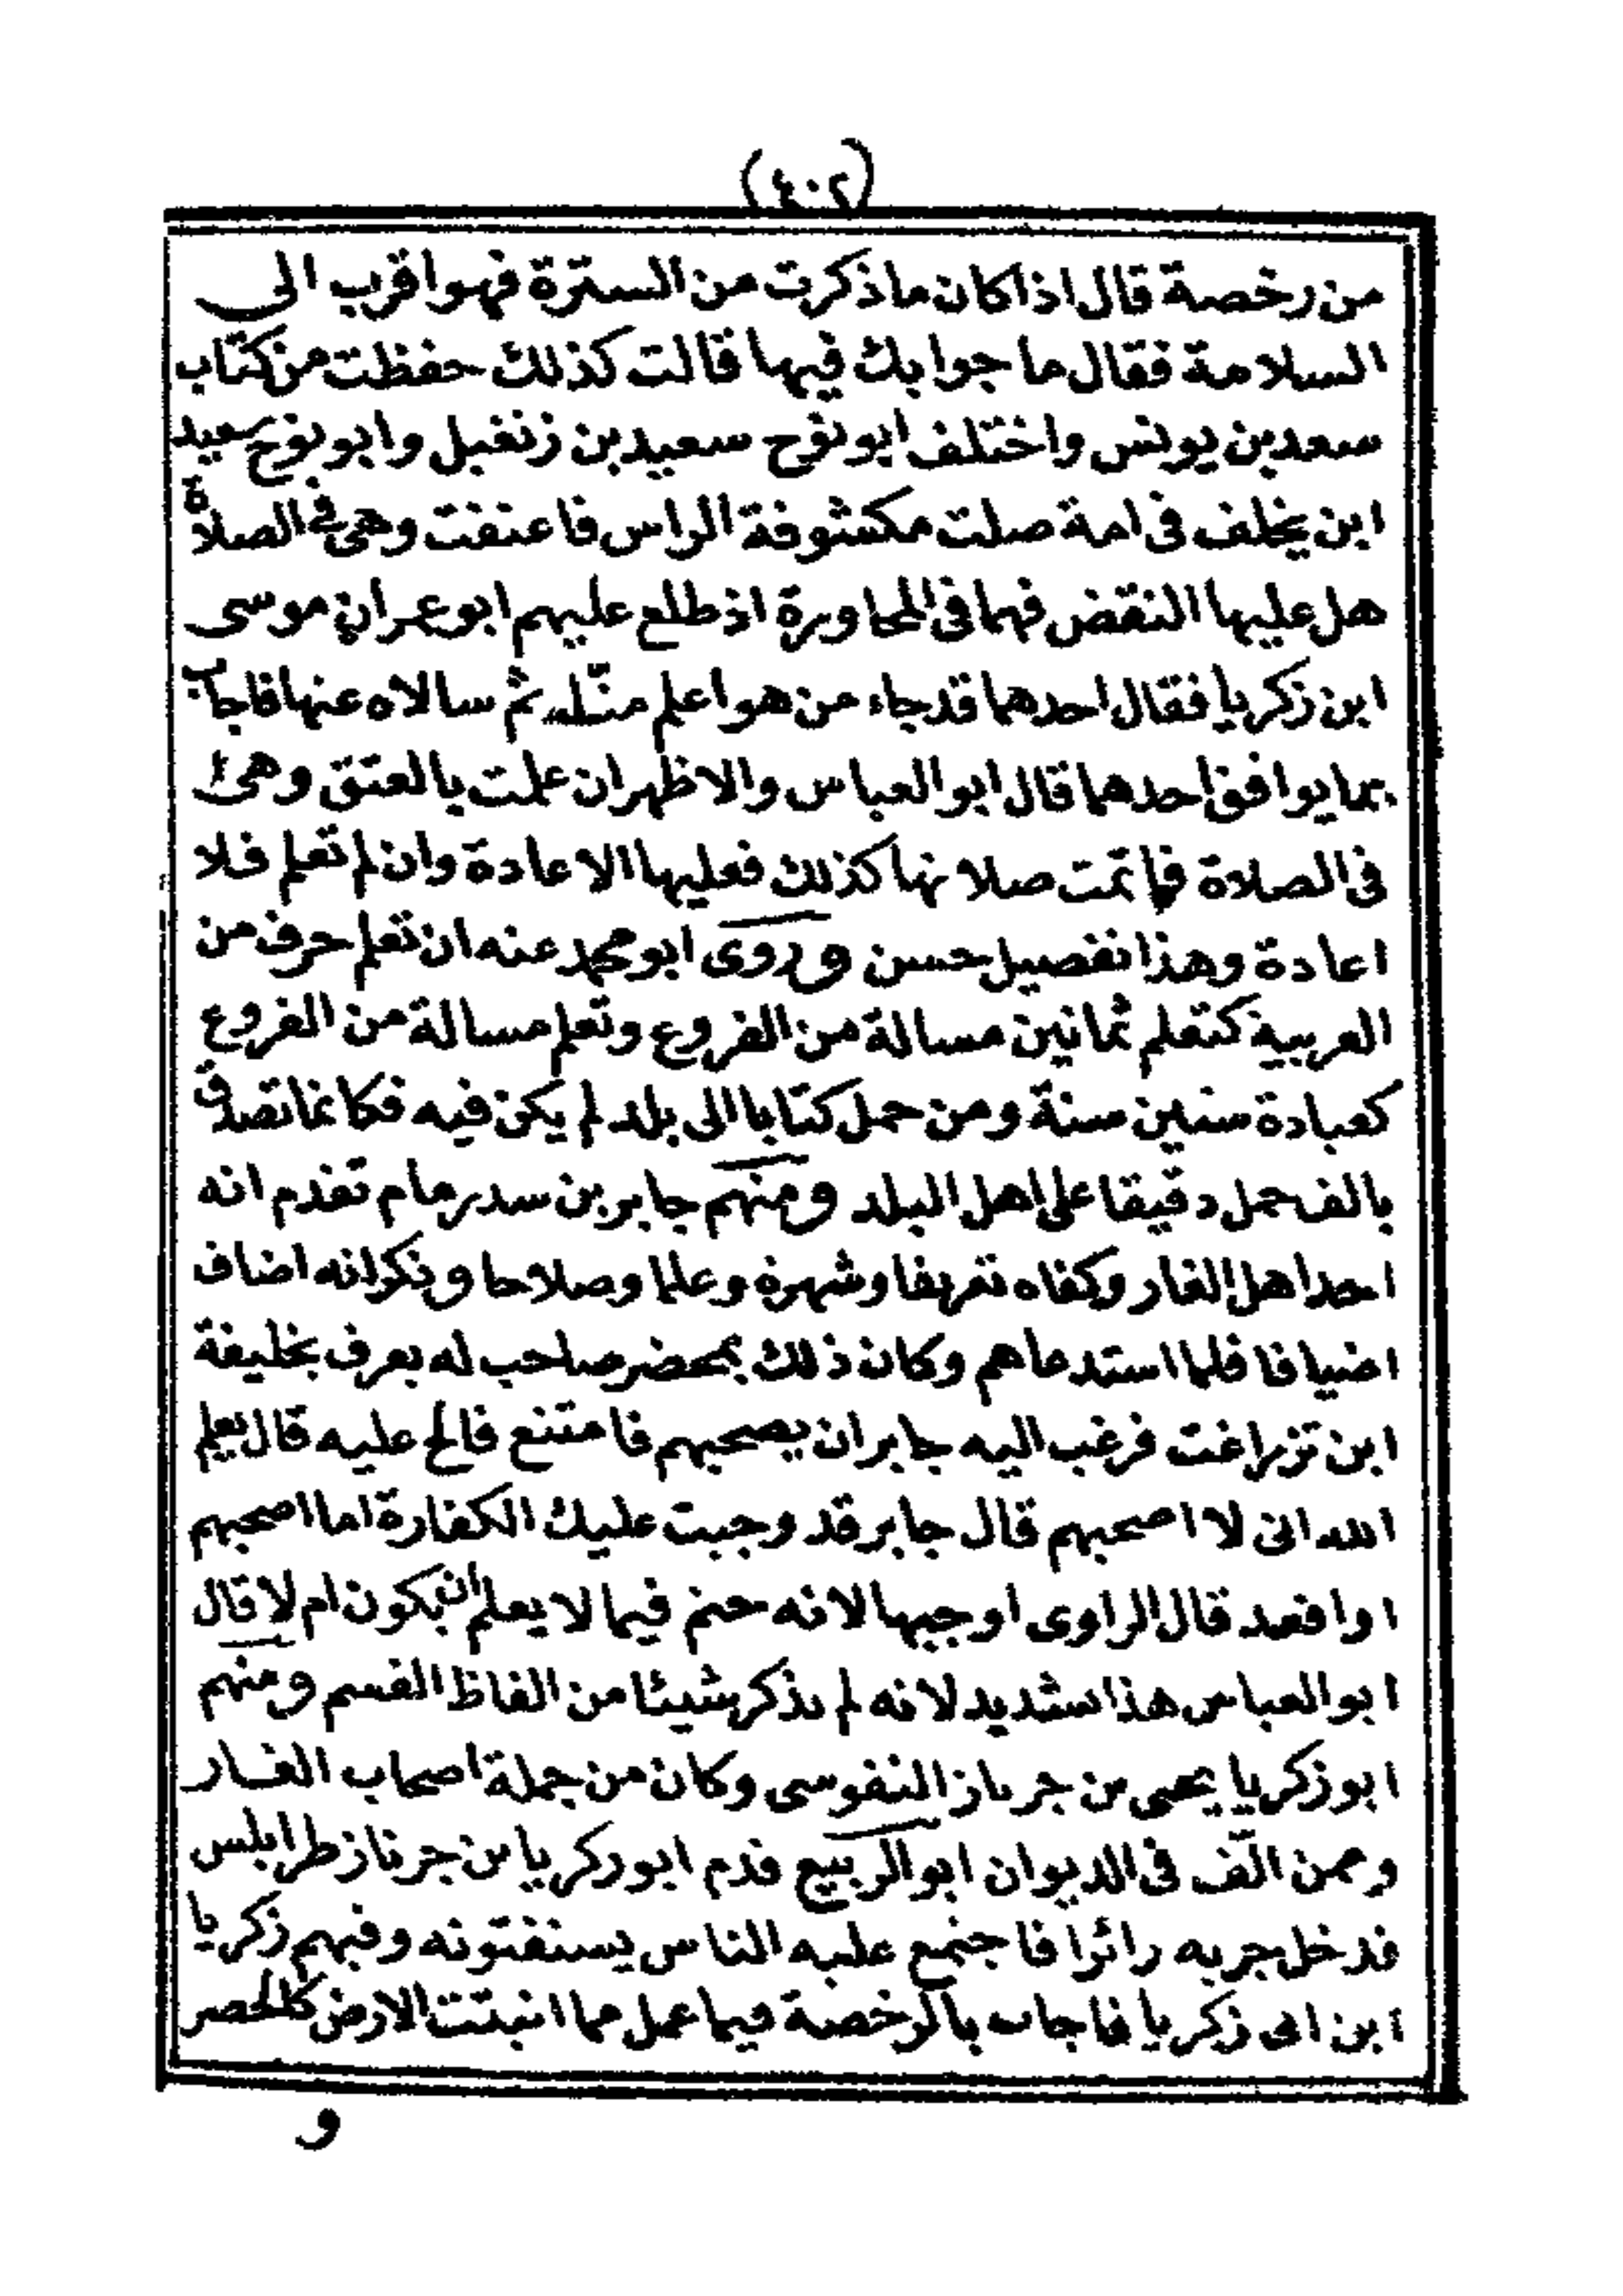 (٤٠٢)
من رخصة قال اذا كان ما ذكرت من السترة فهو اقرب الى
السلامة فقال ما جوابك فيها قالت كذلك حفظت من كتاب
سعد بن يونس واختلف ابو نوح سعيد بن زنغيل وابو نوح سعيد
ابن يخلف فى امة صلت مكشوفة الراس فاعتقت وهى فى الصلاة
هل عليها النقض فهما فى المحاورة اذ طلع عليهم ابو عمران موسى
ابن زكريا فقال احدهما قد جاء من هو اعلم ثم سالاه عنها فاجاب
بما يوافق احدهما قال ابو العباس والاظهر ان علمت بالعتق وهى
فى الصلاة فاتمت صلاتها كذلك فعليها الاعادة وان لم تعلم فلا
اعادة وهذا تفصيل حسن وروى ابو محمد عنه ان تعلم حرف من
العربية كتعلم ثمانين مسالة من الفروع وتعلم مسالة من الفروع
كعبادة ستين سنة ومن حمل كتابا الى بلد لم يكن فيه فكانما تصدق
بالف حمل دقيقا على اهل البلد ومنهم جابر بن سدرمام تقدم انه
احد اهل الغار وكفاه تعريفا وشهرة وعلما وصلاحا وذكر انه اضاف
اضيافا فلما استدعاهم وكان ذلك بمحضر صاحب له يعرف بخليفة
ابن تزراغت فرغب اليه جابر ان يصحبهم فامتنع فالح عليه قال يعلم
الله انى لا اصحبهم قال جابر قد وجبت عليك الكفارة اما اصحبهم
او اقعد قال الراوى اوجبها لانه حتم فيما لا يعلم ان يكون ام لا قال
ابو العباس هذا شديد لانه لم يذكر شيئا من الفاظ القسم ومنهم
ابو زكريا يحيى بن جرناز النفوسى وكان من جملة اصحاب الغار
وممن الّف فى الديوان ابو الربيع قدم ابو زكريا بن جرناز طرابلس
فدخل جربه زائرا فاجتمع عليه الناس يستفتونه وفيهم زكريا
ابن ابى زكريا فاجاب بالرخصة فيما عمل مما انبتت الارض كالحصر
و